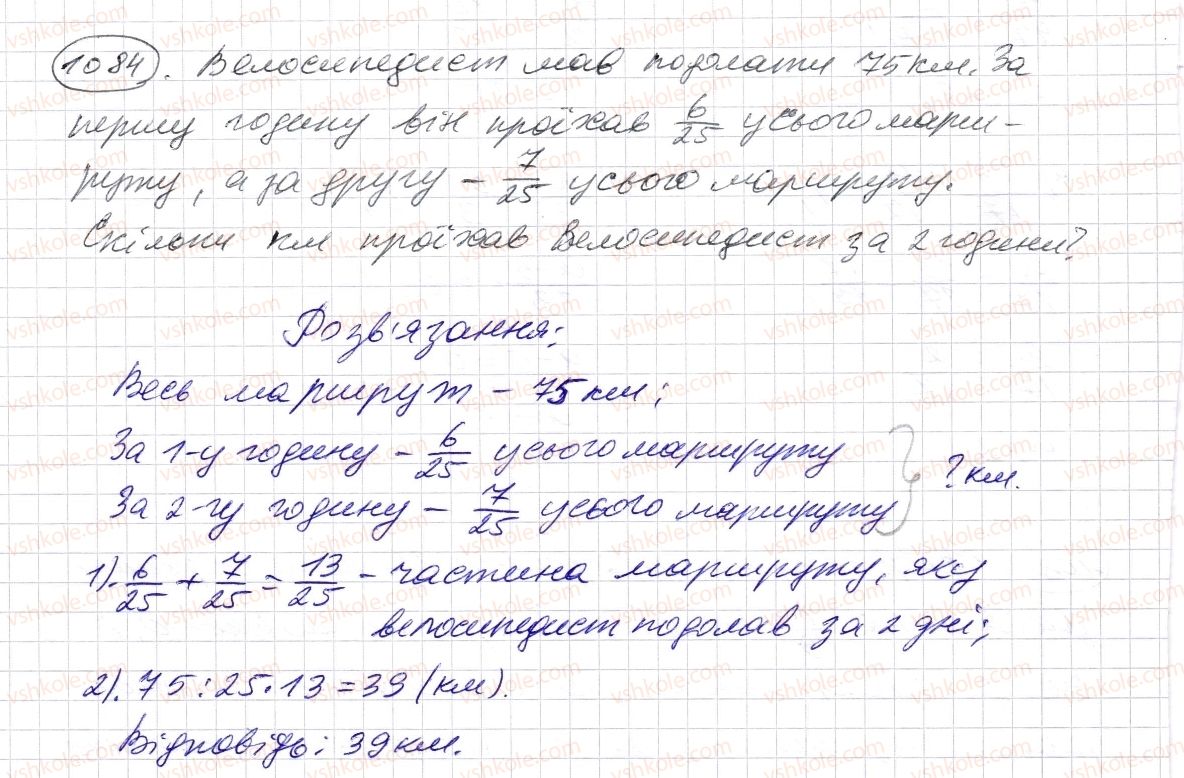 1084. Велосипедист мав подолати 75 км. За
першу годину він проїхав 6/25 усього марш-
руту, а за другу – 7/25 усього маршруту.
Скільки км проїхав велосипедист за 2 години?
Розв'язання:
Весь маршрут – 75 км;
За 1-у годину – 6/25 усього маршруту
? км.
За 2-гу годину – 7/25 усього маршруту
1). 6/25 + 7/25 = 13/25 – частина маршруту, яку
велосипедист подолав за 2 дні;
2). 75 : 25 · 13 = 39 (км).
Відповідь: 39 км.